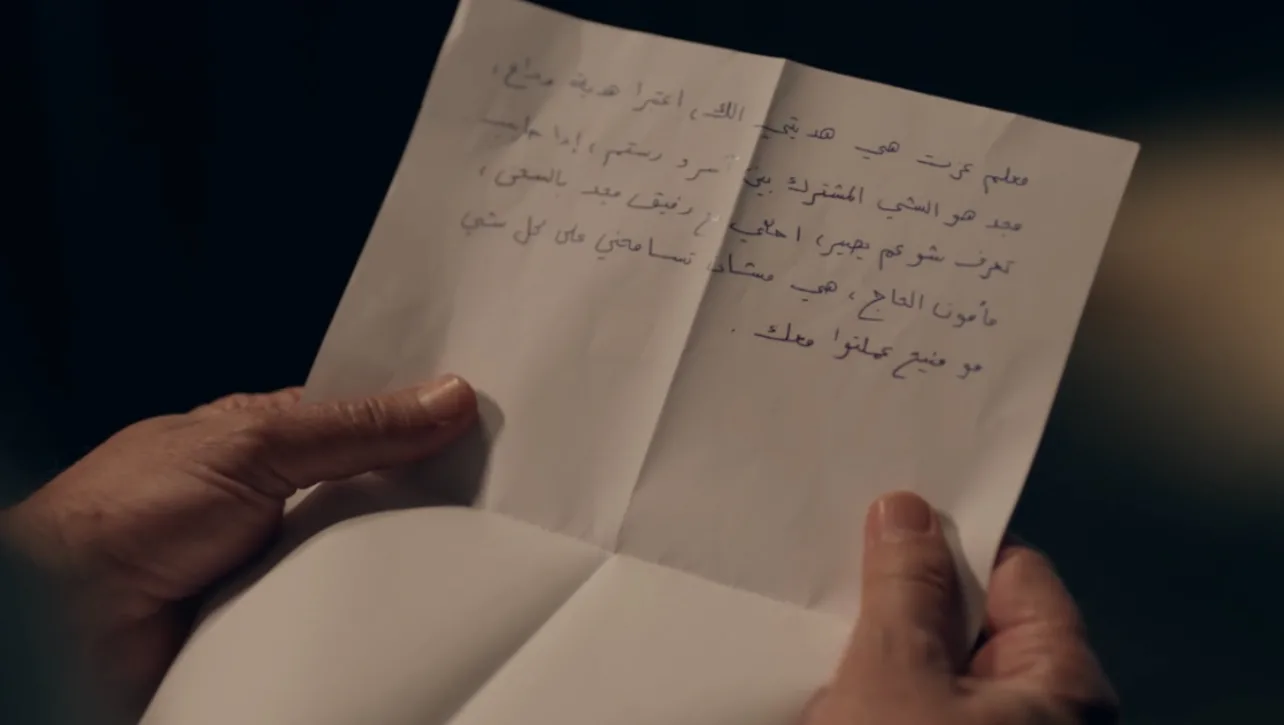 معلم عزت هي هديتي الك، اعتبرا هدية وداع،
مجد هو الشي المشترك بين و رستم، إذا حابب
تعرف شو عم بيصير، احكي مع رفيق مجد بالسجن،
مأمون الحاج، هي مشان تسامحني على كل شي
مو منيح عملتوا معك.